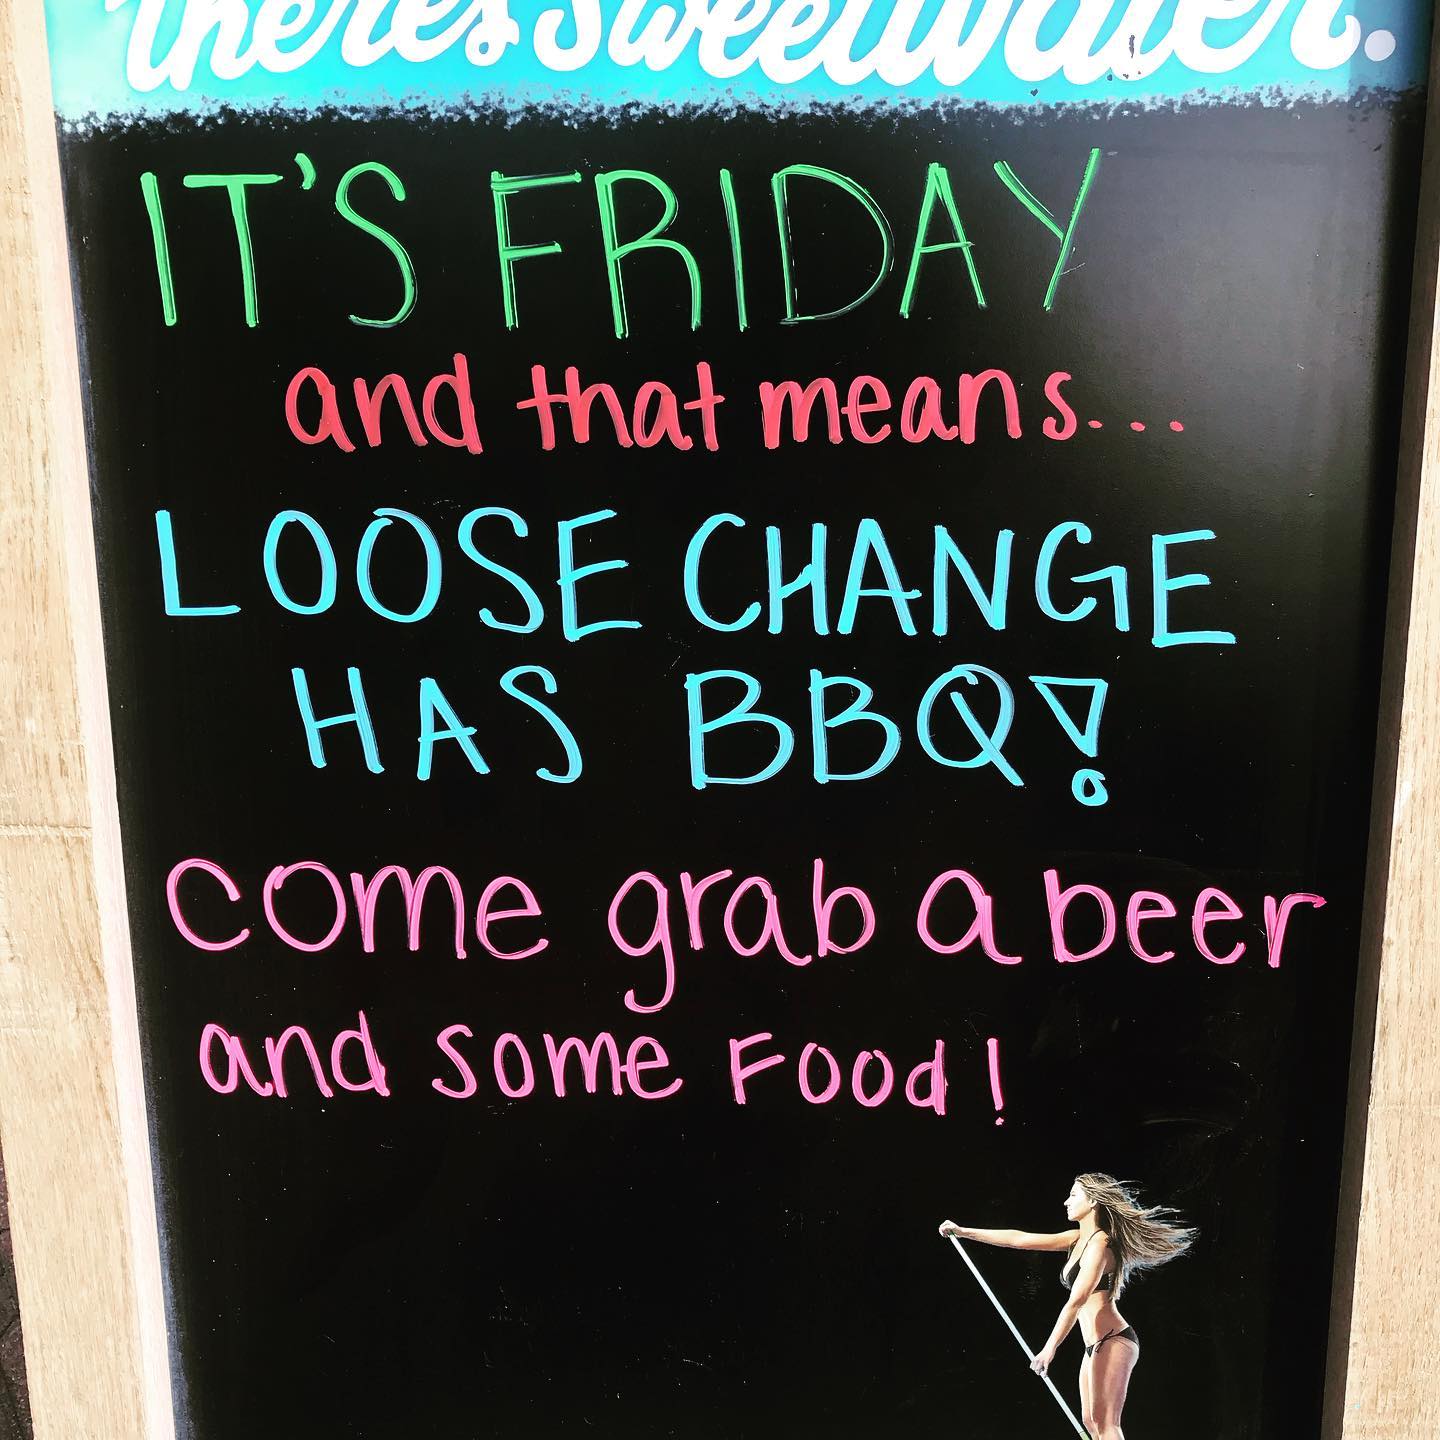 there's Sweetwater.
IT'S FRIDAY
and that means...
LOOSE CHANGE
HAS BBQ!
come grab a beer
and some Food!